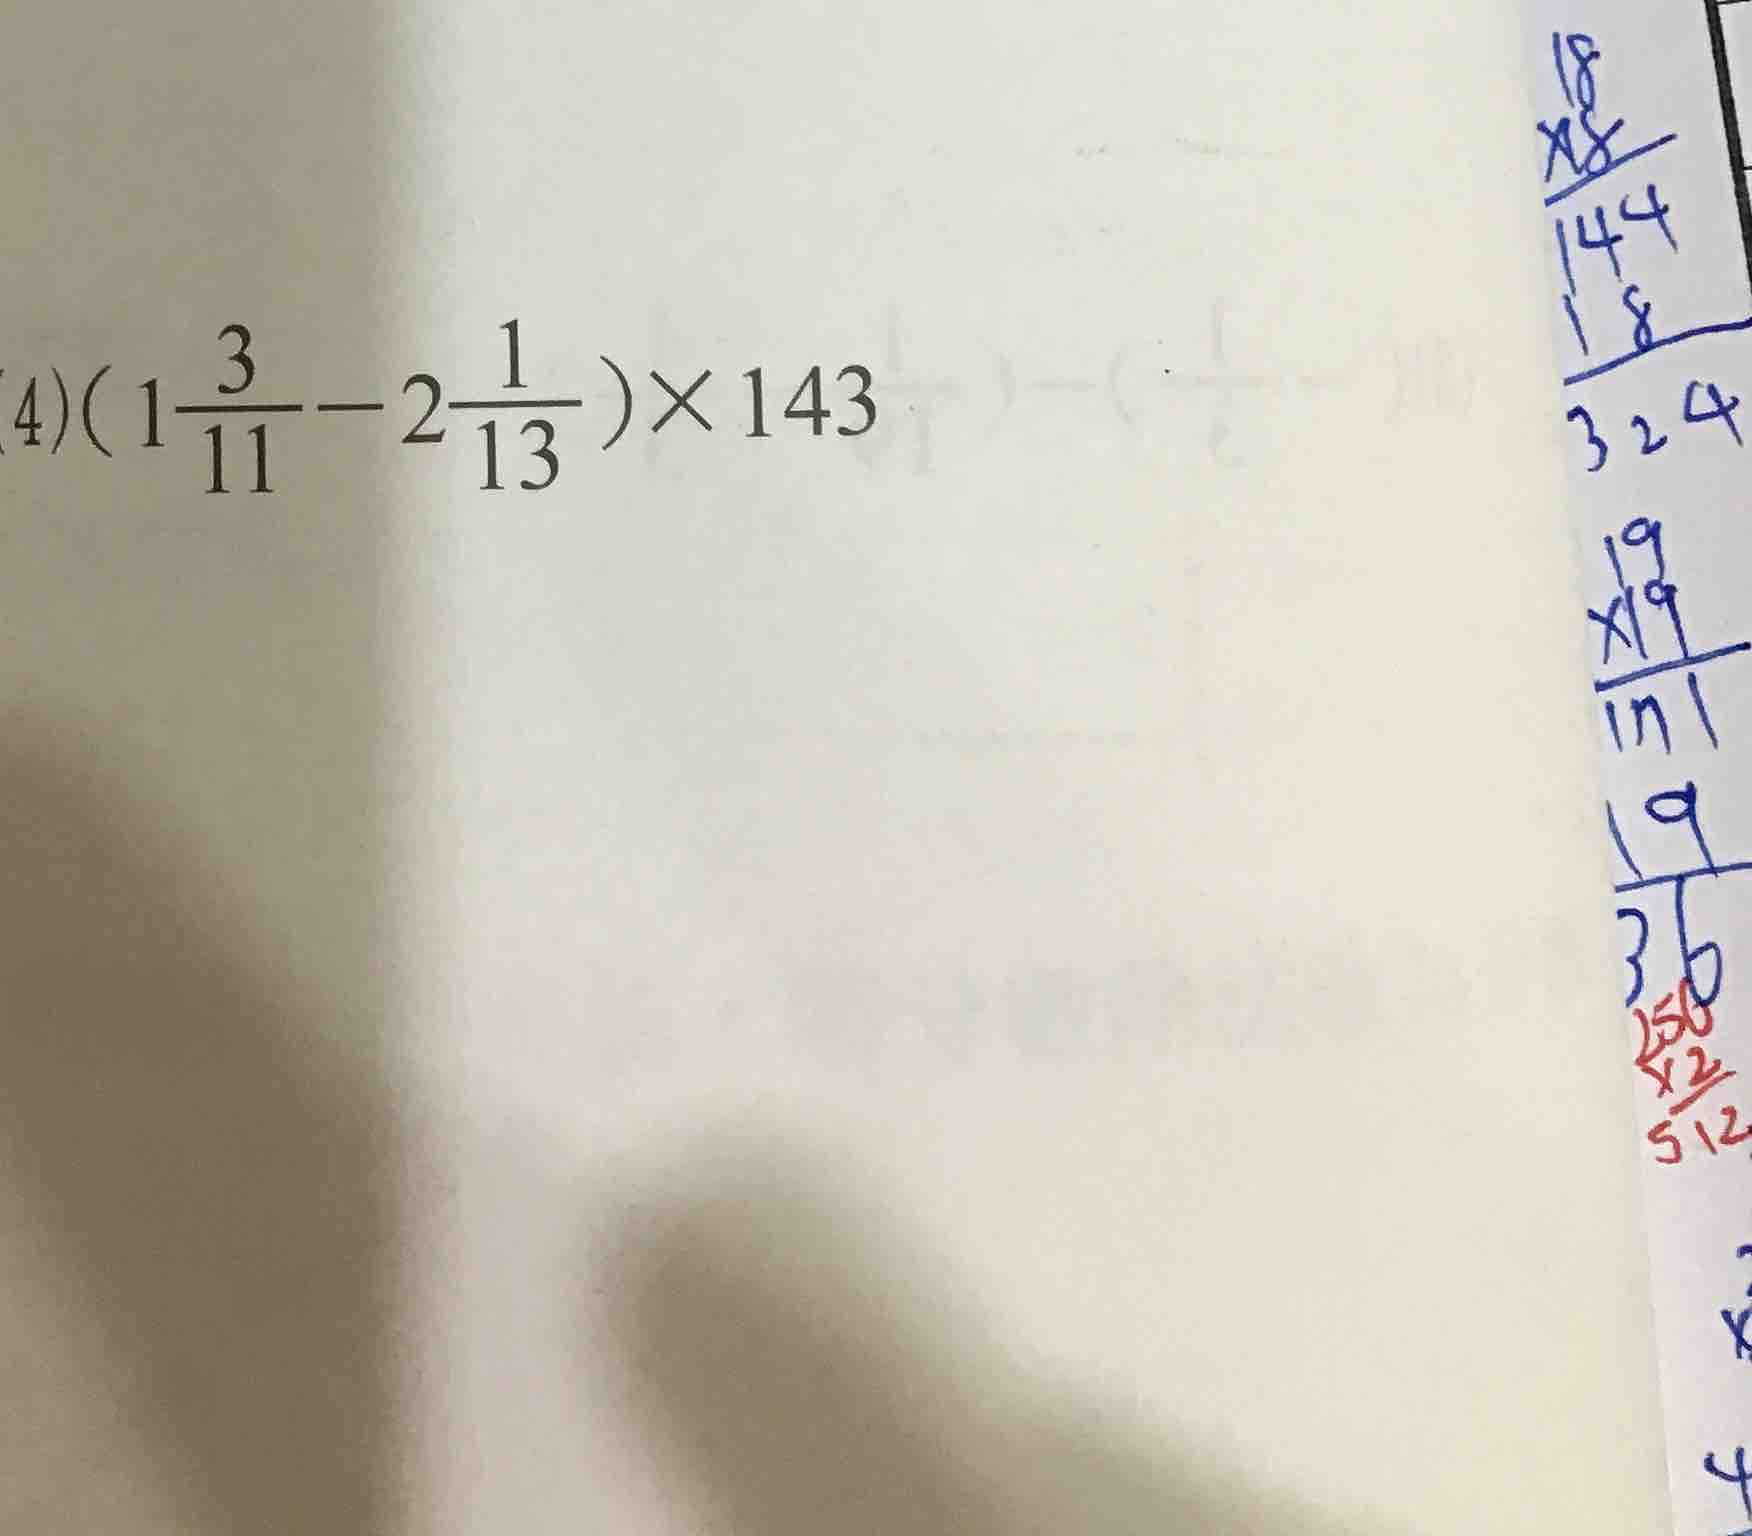 (4)(1 3/11 − 2 1/13)×143
18
×18
144
18
324
19
×19
171
19
36
256
×2
512
4